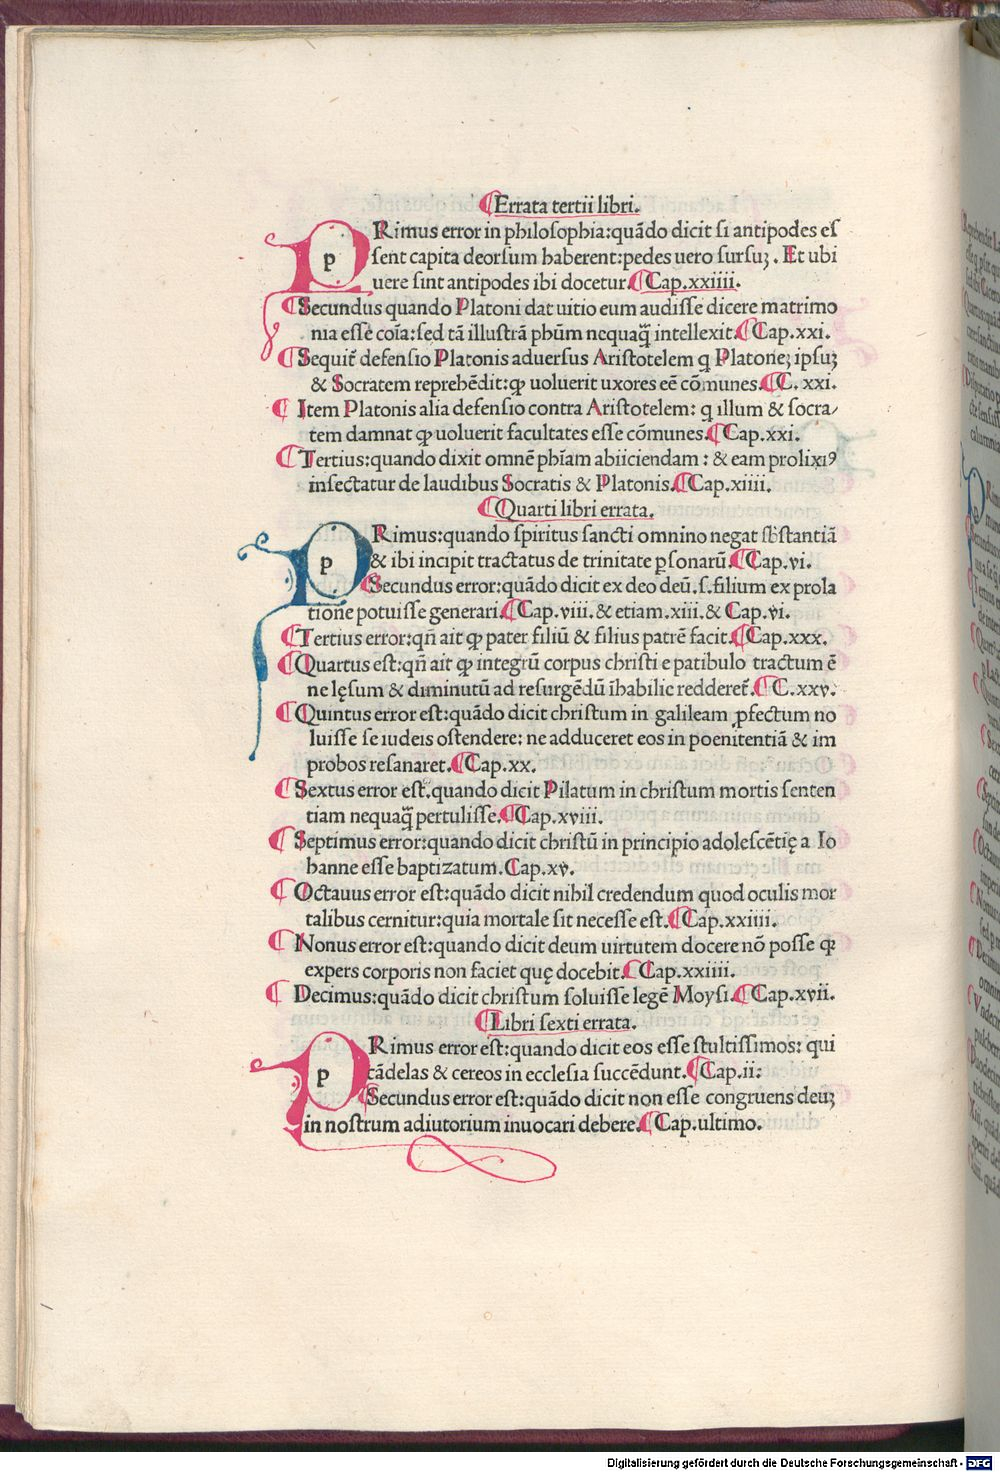 ¶Errata tertii libri.
PRimus error in philosophia:quãdo dicit si antipodes es
sent capita deorsum haberent:pedes uero sursuȝ. Et ubi
uere sint antipodes ibi docetur.¶Cap.xxiiii.
¶Secundus quando Platoni dat uitio eum audisse dicere matrimo
nia esse coĩa:sed tã illustrã phũm nequaq̃ intellexit.¶Cap.xxi.
¶Sequit᷑ defensio Platonis aduersus Aristotelem q Platoneȝ ipsuȝ
& Socratem reprehẽdit:ꝙ uoluerit uxores eẽ cõmunes.¶C. xxi.
¶Item Platonis alia defensio contra Aristotelem: q illum & socra/
tem damnat ꝙ uoluerit facultates esse cõmunes.¶Cap.xxi.
¶Tertius:quando dixit omnẽ phĩam abiiciendam : & eam prolixiꝰ
insectatur de laudibus Socratis & Platonis.¶Cap.xiiii.
¶Quarti libri errata.
PRimus:quando spiritus sancti omnino negat sb̃stantiã
& ibi incipit tractatus de trinitate ꝑsonarũ.¶Cap.vi.
¶Secundus error:quãdo dicit ex deo deũ.s.filium ex prola
tione potuisse generari.¶Cap.viii.& etiam.xiii.& Cap.vi.
¶Tertius error:qñ ait ꝙ pater filiũ & filius patrẽ facit.¶Cap.xxx.
¶Quartus est:qñ ait ꝙ integrũ corpus christi e patibulo tractum ẽ
ne lęsum & diminutũ ad resurgẽdũ ĩhabilic redderet᷑.¶C.xxv.
¶Quintus error est:quãdo dicit christum in galileam ꝓfectum no
luisse se iudeis ostendere: ne adduceret eos in poenitentiã & im
probos resanaret.¶Cap.xx.
¶Sextus error est.quando dicit Pilatum in christum mortis senten
tiam nequaq̃ pertulisse.¶Cap.xviii.
¶Septimus error:quando dicit christũ in principio adolescẽtię a Io
hanne esse baptizatum.Cap.xv.
¶Octauus error est:quãdo dicit nihil credendum quod oculis mor
talibus cernitur:quia mortale sit necesse est.¶Cap.xxiiii.
¶Nonus error est:quando dicit deum uirtutem docere nõ posse ꝙ
expers corporis non faciet quę docebit.¶Cap.xxiiii.
¶Decimus:quãdo dicit christum soluisse legẽ Moysi.¶Cap.xvii.
¶Libri sexti errata.
PRimus error est:quando dicit eos esse stultissimos: qui
cãdelas & cereos in ecclesia succẽdunt.¶Cap.ii:
¶Secundus error est:quãdo dicit non esse congruens deuȝ
in nostrum adiutorium inuocari debere.¶Cap.ultimo.
Digitalisierung gefördert durch die Deutsche Forschungsgemeinschaft - DFG